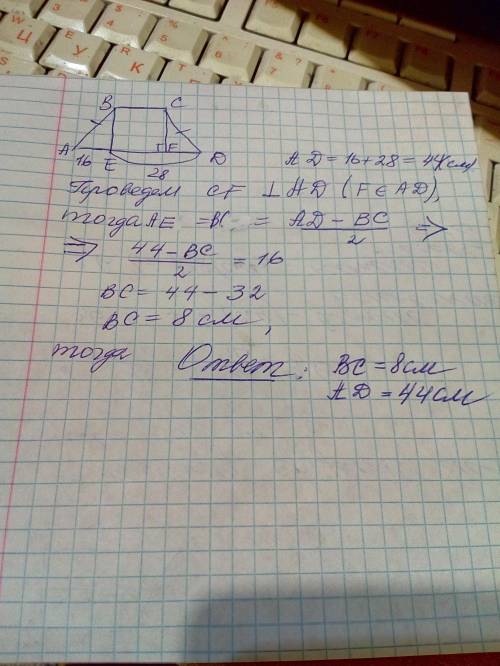 B C
A 16 E F D
28
AD = 16 + 28 = 44(см)
Проведем CF ⊥ AD (F ∈ AD),
тогда AE = BC = AD - BC / 2 ⇒
⇒ 44 - BC / 2 = 16
BC = 44 - 32
BC = 8 см,
тогда Ответ: BC = 8 см
AD = 44 см